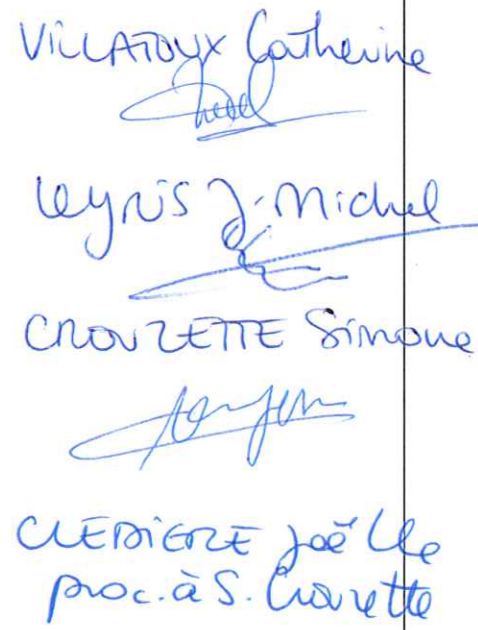 VILLATOUX Catherine
Leyris J-Michel
CROUZETTE Simone
CLEDIERE Joëlle
proc. à S. Crouzette